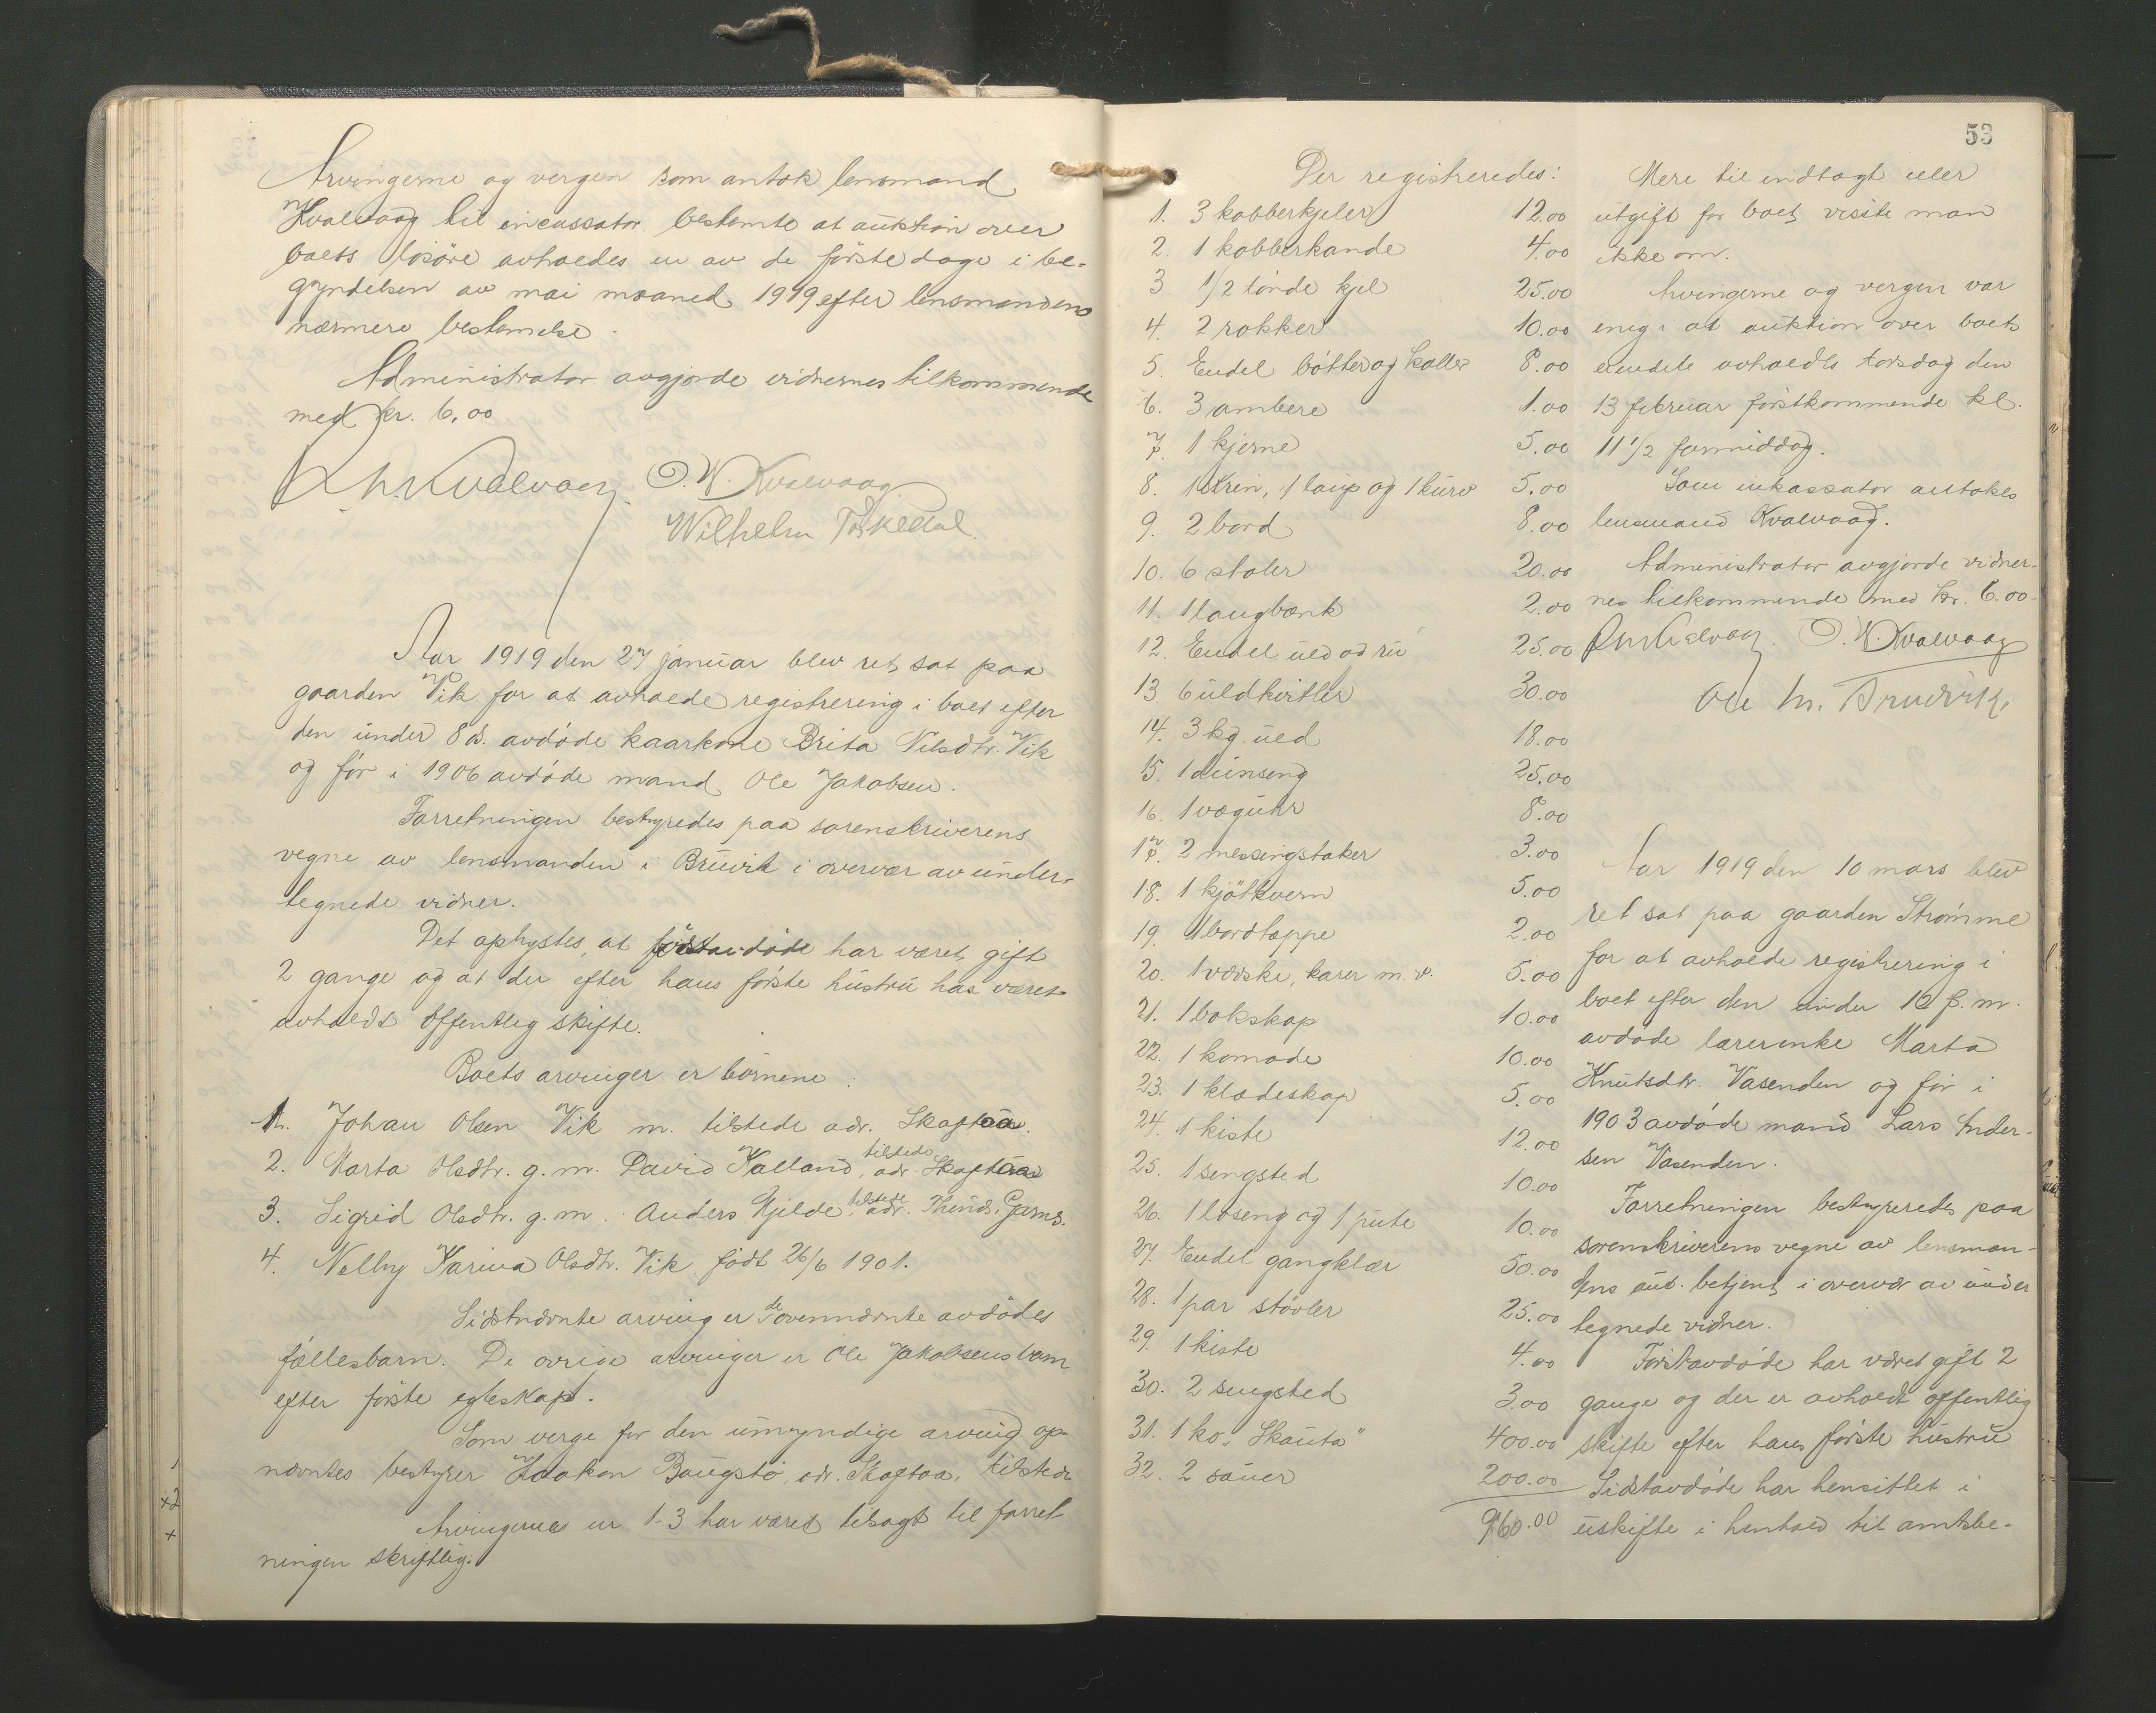 Arvingerne og vergen som antok lensmand
Kvalvaag til incassator bestemte at auktion over
boets løsøre avholdes en av de første dage i be-
gyndelsen av mai maaned 1919 efter lensmandens
nærmere bestemelse.
Administrator avgjorde vidnernes tilkommende
med kr. 6,00
Kvalvaag. O. W. Kvalvaag
Wilhelm
Aar 1919 den 27 januar blev ret sat paa
gaarden Vik for at avholde registrering i boet efter
den under 8 ds. avdøde kaarkone Brita Nilsdtr. Vik
og før i 1906 avdøde mand Ole Jakobsen.
Forretningen bestyredes paa sorenskriverens
vegne av lensmanden i Bruvik i overvær av under-
tegnede vidner.
Det oplystes, at førstavdøde har været gift
2 gange og at der efter hans første hustru har været
avholdt offentlig skifte.
Boets arvinger er børnene:
1. Johan Olsen Vik m. tilstede adr. Skaftaa.
2. Marta Olsdtr. g. m. David Kalland, tilstede adr. Skaftaa
3. Sigrid Olsdtr. g. m. Anders Gjilde, tilstede adr. Thunds. Gams.
4. Nelly Karina Olsdtr. Vik født 26/6 1901.
Sidstnævnte arving er de ovennævnte avdødes
fællesbarn. De øvrige arvinger er Ole Jakobsens barn
efter første egteskap.
Som verge for den umyndige arving op-
nævntes bestyrer Haakon Baugstø, adr. Skaftaa, tilstede
Arvingerne nr 1-3 har været tilsagt til forret
ningen skriftlig.
53
Der registreredes:
1. 3 kobberkjeler 12.00
2. 1 kobberkande 4.00
3 1/2 tønde kjel 25.00
4. 2 rokker 10.00
5. Endel bøtter og koller 8.00
6. 3 ambere 1.00
7. 1 kjerne 5.00
8. 1 skrin, 1 laup og 1 kurv 5.00
9. 2 bord 8.00
10. 6 stoler 20.00
11. 1 langbænk 2.00
12. Endel uld od ru 25.00
13 6 uldkitler 30.00
14. 3 kg. uld 18.00
15. 1 dunseng 25.00
16. 1 væguhr 8.00
17. 2 messingstaker 3.00
18. 1 kjøtkvern 5.00
19. 1 bordtæppe 2.00
20. 1 væske, karer m. v. 5.00
21. 1 bokskap 10.00
22. 1 komode 10.00
23. 1 klædeskap 5.00
24. 1 kiste 12.00
25. 1 sengsted 10.00
26. 1 løseng og 1 pute 10.00
27. Endel gangklær 50.00
28. 1 par støvler 25.00
29. 1 kiste 4.00
30. 2 sengsted 3.00
31. 1 ko "Skauta" 400.00
32. 2 sauer 200.00
960.00
Mere til indtægt eller
utgift for boet visste man
ikke om.
Arvingerne og vergen var
enig i at auktion over boets
eiendele avholdes torsdag den
13 februar førstkommende kl.
11 1/2 formiddag.
Som inkassator antokes
lensmand Kvalvaag.
Administrator avgjorde vidner-
nes tilkommende med kr. 6.00
Kvalvaag. O. W. Kvalvaag
Ole M.
Aar 1919 den 10 mars blev
ret sat paa gaarden Strømme
for at avholde registrering i
boet efter den under 10 f. m.
avdøde lærerenke Marta
Knutsdtr. Vasenden og før i
1903 avdøde mand Lars Ander-
sen Vasenden.
Forretningen bestyreredes paa
sorenskriverens vegne av lensman-
dens aut. betjent i overvær av under
tegnede vidner.
Førstavdøde har været gift 2
gange og der er avholdt offentlig
skifte efter hans første hustru
Sidstavdøde har hensittet i
uskifte i henhold til amtsbe-